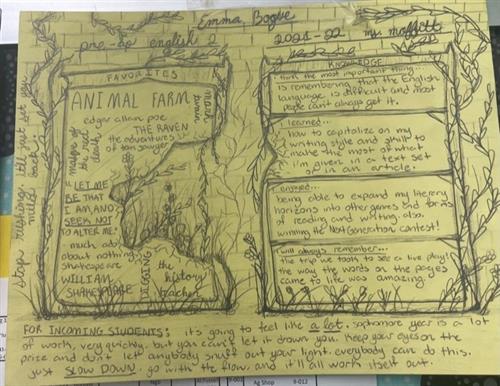 Emma Bogue
pre-ap english 2
2021-22 ms. moffett
FAVORITES
ANIMAL FARM
edgar allan poe
THE RAVEN
masque of the red death
the adventures of tom sawyer
mark twain
"LET ME
BE THAT
I AM AND
SEEK NOT
TO ALTER ME."
much ado
about nothing
shakespeare
WILLIAM
SHAKESPEARE
DIGGING
the history teacher
KNOWLEDGE
I think the most important thing
is remembering that the English
language is difficult and most
people can't always get it.
I learned...
how to capitalize on my
writing style and skill to
make the most of what
i'm given in a text set
or in an article.
I enjoyed...
being able to expand my literary
horizons into other genres and forms
of reading and writing. also,
winning the Next Generation contest!
I will always remember...
the trip we took to see a live play!
the way the words on the pages
came to life was amazing!
stop rushing. it'll just set you back.
FOR INCOMING STUDENTS: it's going to feel like a lot. sophomore year is a lot
of work, very quickly. but you can't let it down you. keep your eyes on the
prize and don't let anybody snuff out your light. everybody can do this.
just SLOW DOWN. go with the flow. and it'll all work itself out.
Ag Shop
9-012